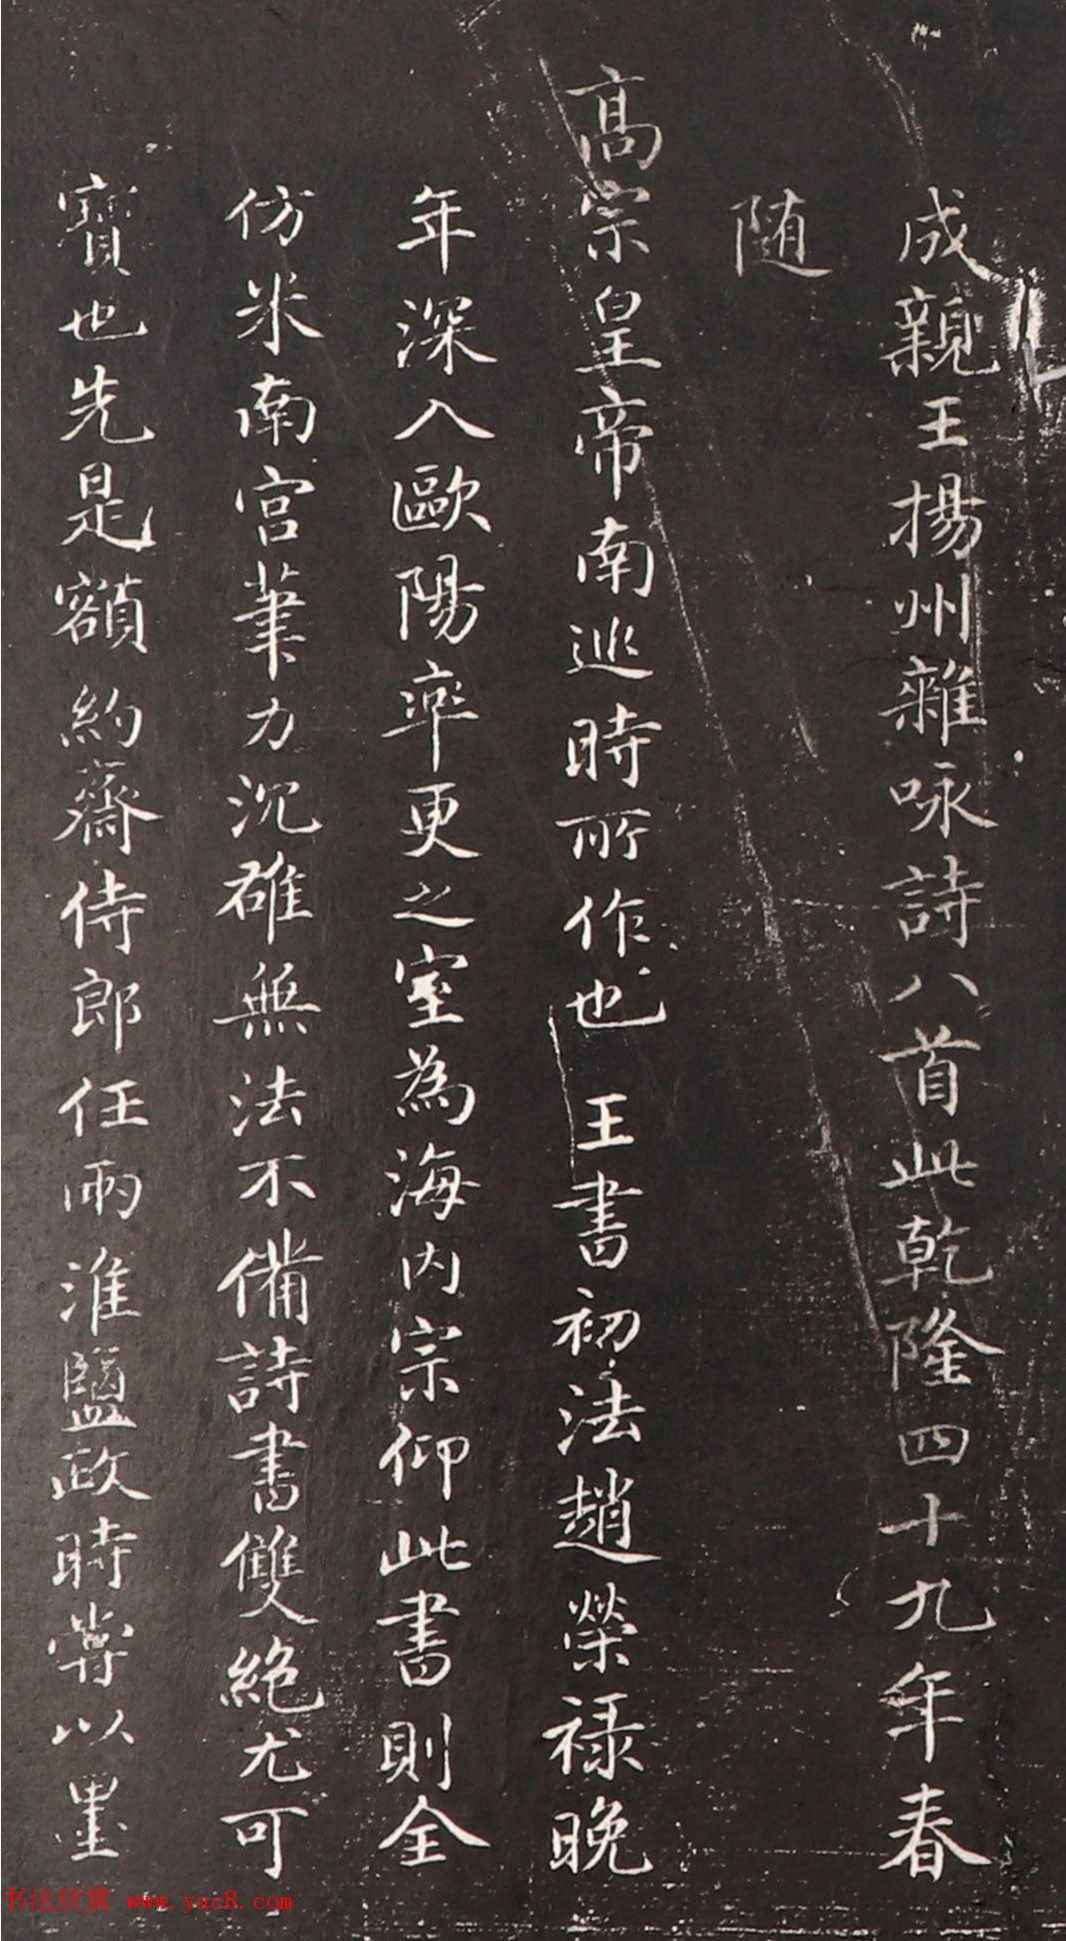 成親王揚州雜咏詩八首此乾隆四十九年春
随
高宗皇帝南巡時所作也王書初法趙榮禄晚
年深入歐陽率更之室為海内宗仰此書則全
仿米南宮筆力沉雄無法不備詩書雙絶尤可
寶也先是額約齋侍郎任兩淮鹽政時嘗以墨
书法欣赏 www.yac8.com